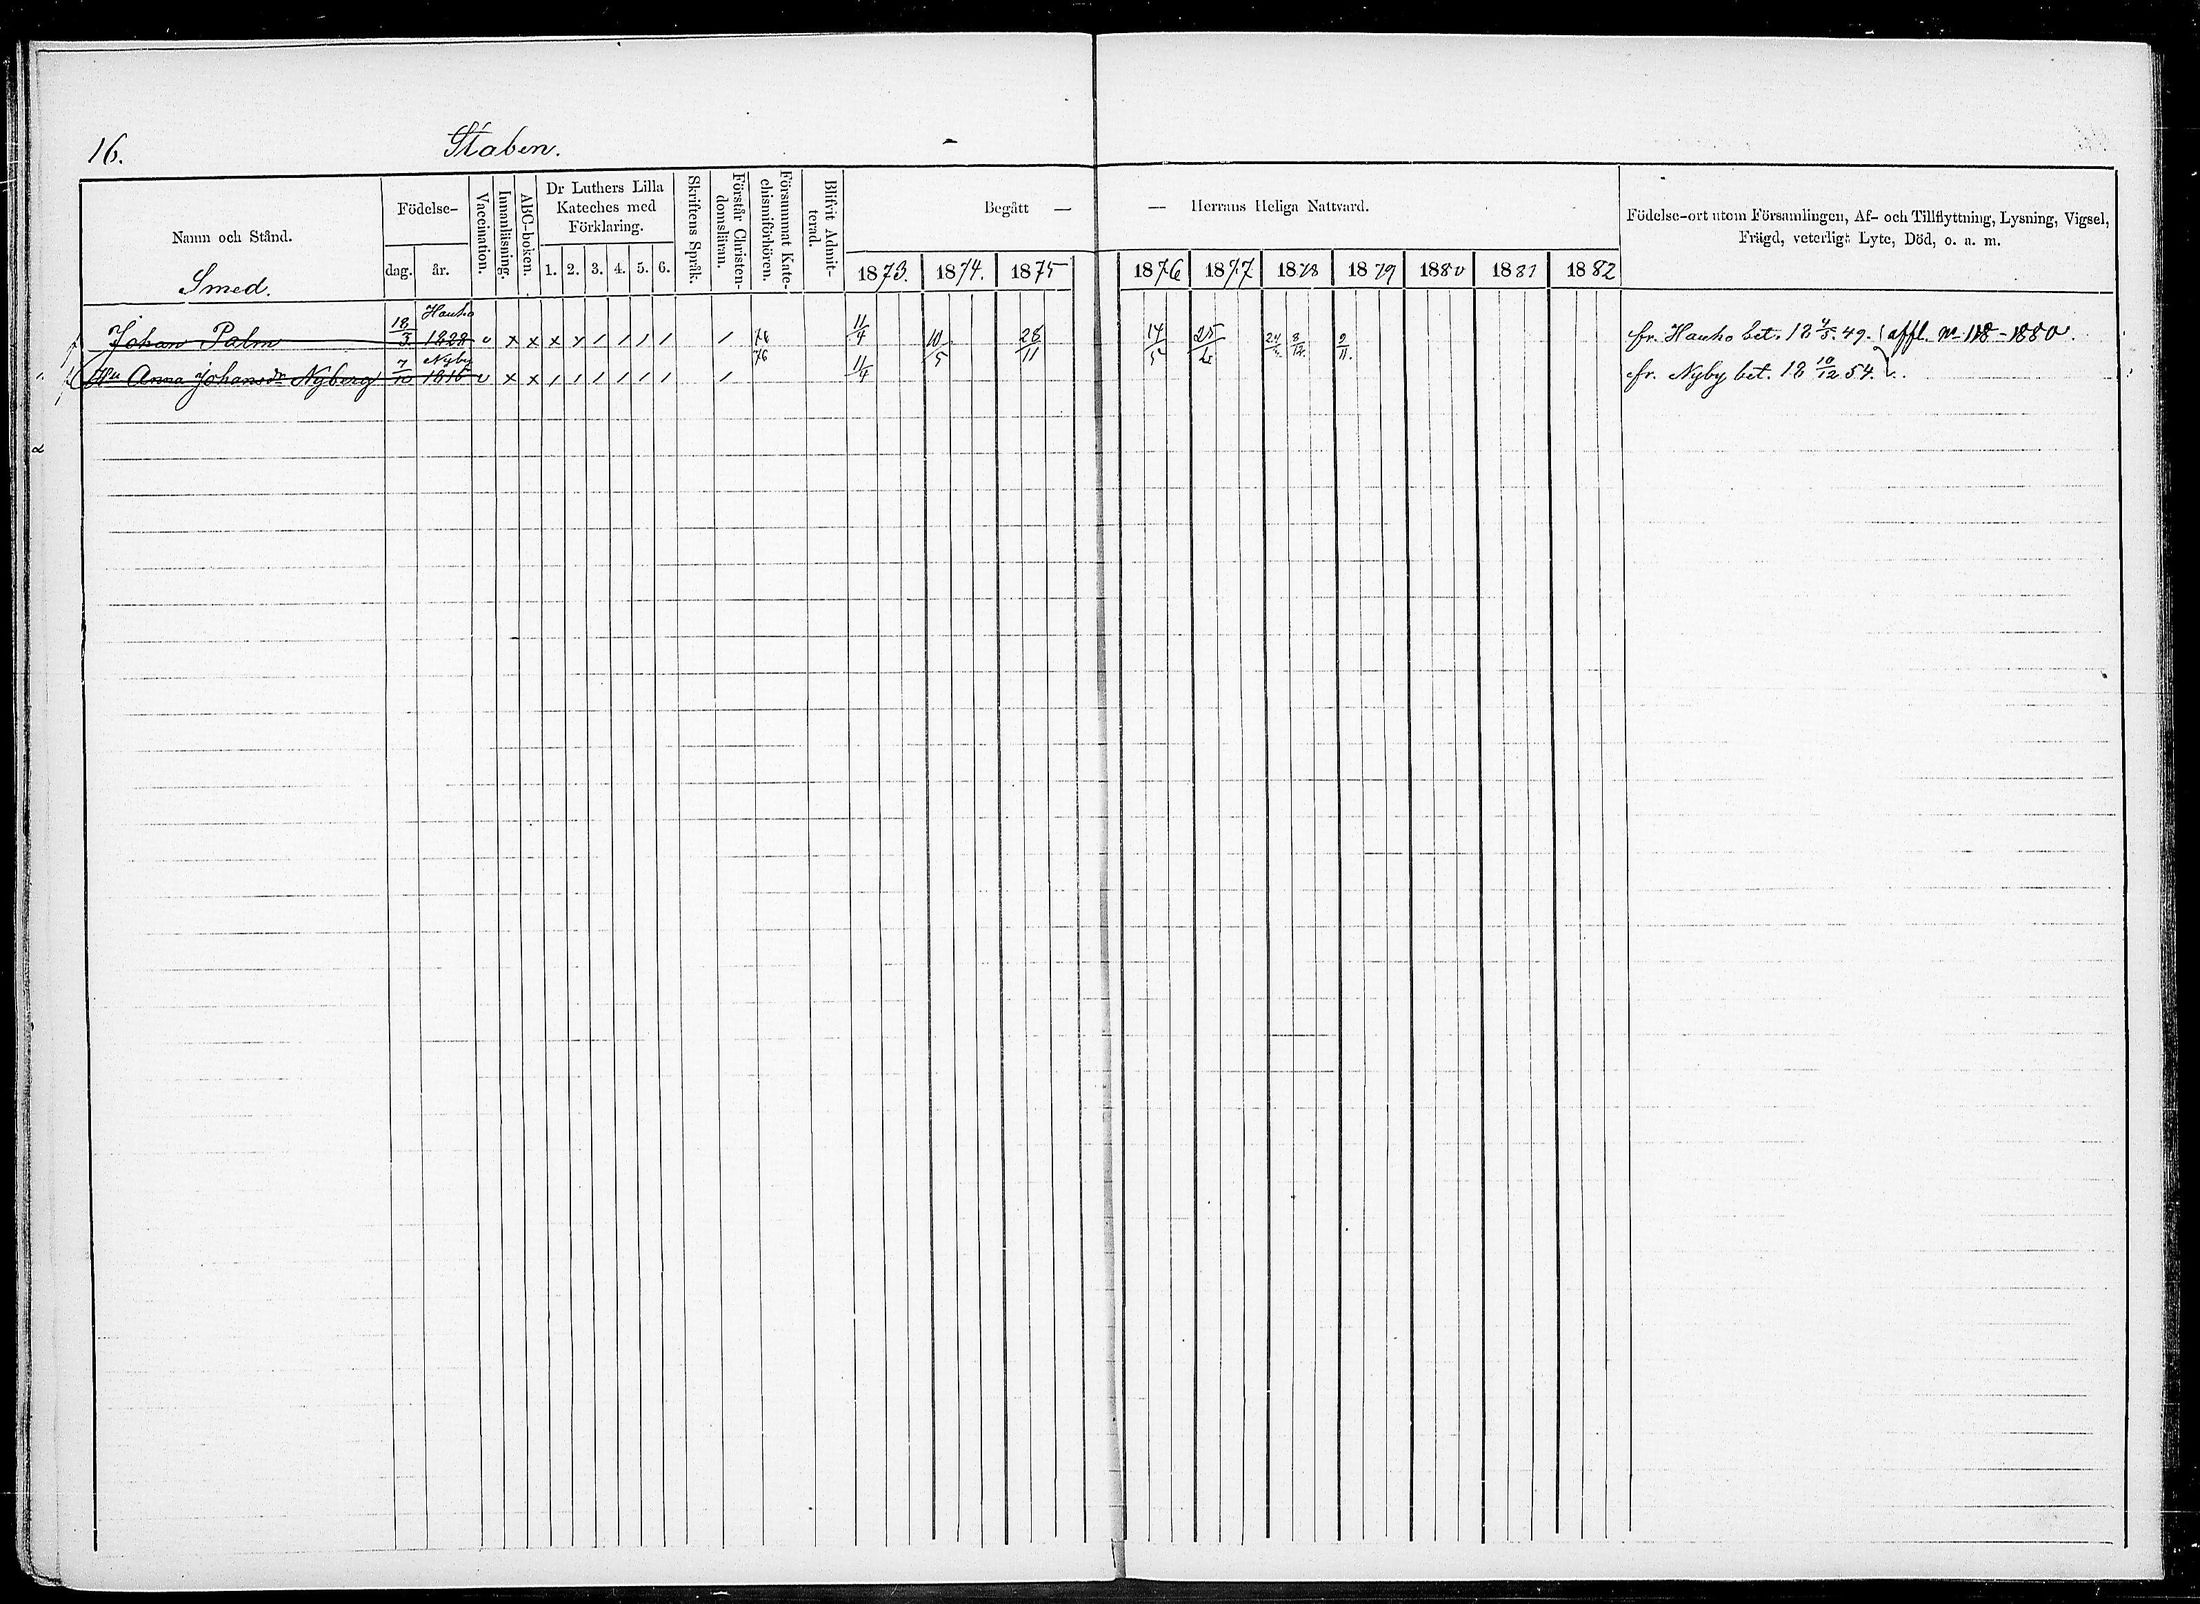 16. Staben.
Namn och Stånd.
Födelse-
dag. år.
Vaccination.
Innanläsning.
ABC-boken.
Dr Luthers Lilla
Kateches med
Förklaring.
1. 2. 3. 4. 5. 6.
Skriftens Språk.
Förstår Christen-
domsläran.
Försummat Kate-
chismiförhören.
Blifvit Admit-
terad.
Begått — — Herrans Heliga Nattvard.
1873. 1874. 1875 1876 1877 1878 1879 1880 1881 1882
Födelse-ort utom Församlingen, Af- och Tillflyttning, Lysning, Vigsel,
Frägd, veterligt Lyte, Död, o. a. m.
Smed.
Hauho
Johan Palm 18/3 1828 v x x x x / / / / / / 76 11/4 10/5 28/11 14/5 25/2 8/12 9/11. fr. Hauho bet. 18 4/5 49. affl. No 118-1880.
Nyby 76
Hu Anna Johansdr Nyberg 7/10 1816 v x x / / / / / / / 11/4 fr. Nyby bet. 18 10/12 54.